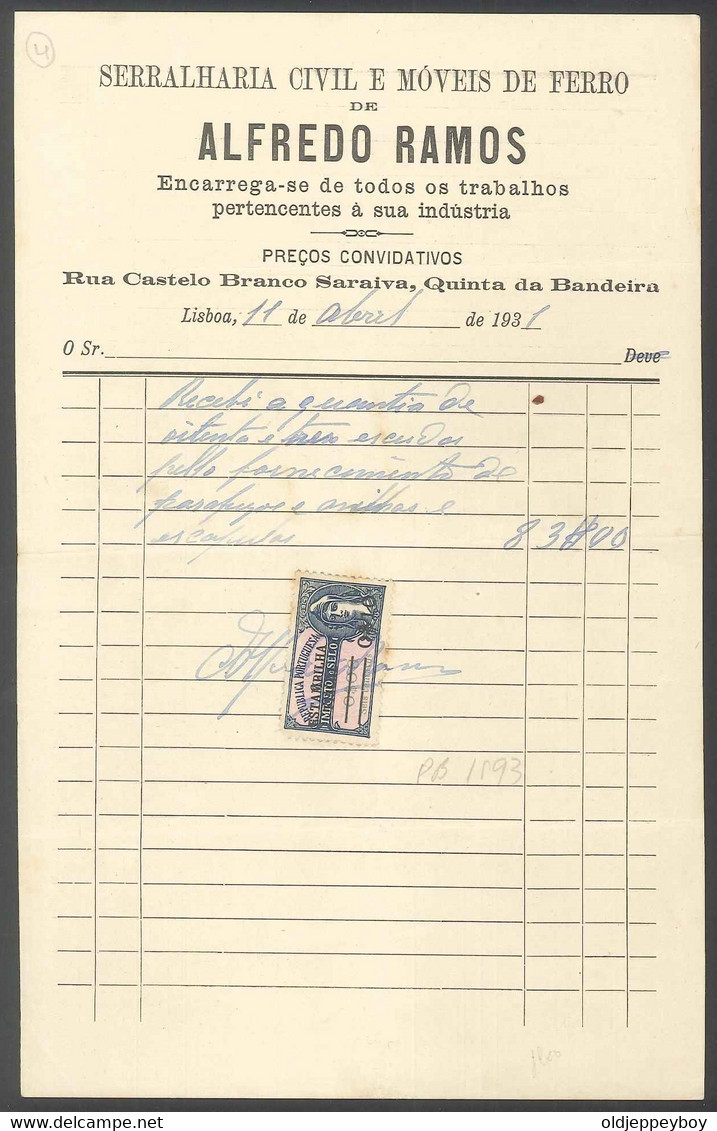 4
SERRALHARIA CIVIL E MÓVEIS DE FERRO
DE
ALFREDO RAMOS
Encarrega-se de todos os trabalhos
pertencentes à sua indústria
PREÇOS CONVIDATIVOS
Rua Castelo Branco Saraiva, Quinta da Bandeira
Lisboa, 11 de abril de 1931
O Sr. Deve
Recebi a quantia de
oitenta e tres escudos
pello fornecimento de
parafuzos e anilhas e
escapulas 83$00
REPUBLICA PORTUGUESA
ESTAMPILHA
IMPOSTO DO SELO
PB 1593
oldjeppeyboy